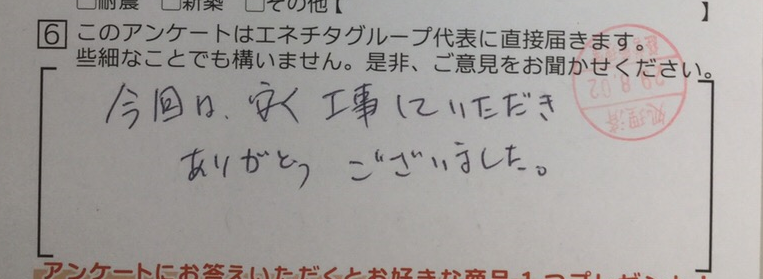 □耐震 □新築 □その他【 】
6 このアンケートはエネチタグループ代表に直接届きます。
些細なことでも構いません。是非、ご意見をお聞かせください。
今回は、安く工事していただき
ありがとう ございました。
処理済
アンケートにお答えいただくとお好きな商品1つプレゼント!